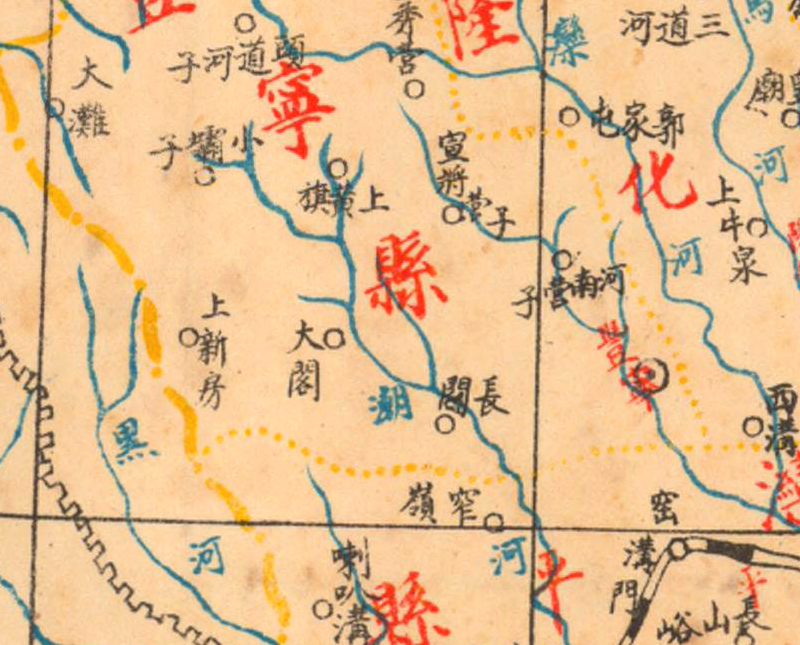 隆
秀營
大灘
頭道河子
寧
三道河
馬
灤
郭家屯
廟
河
化
宣將營子
小壩子
上黃旗
縣
上牛泉
河
河南營子
上新房
大閣
豐寧
長閣
潮
西溝
灤
黑
窄嶺
窑溝門
河
河
喇叭溝
縣
平
平
長
山
峪